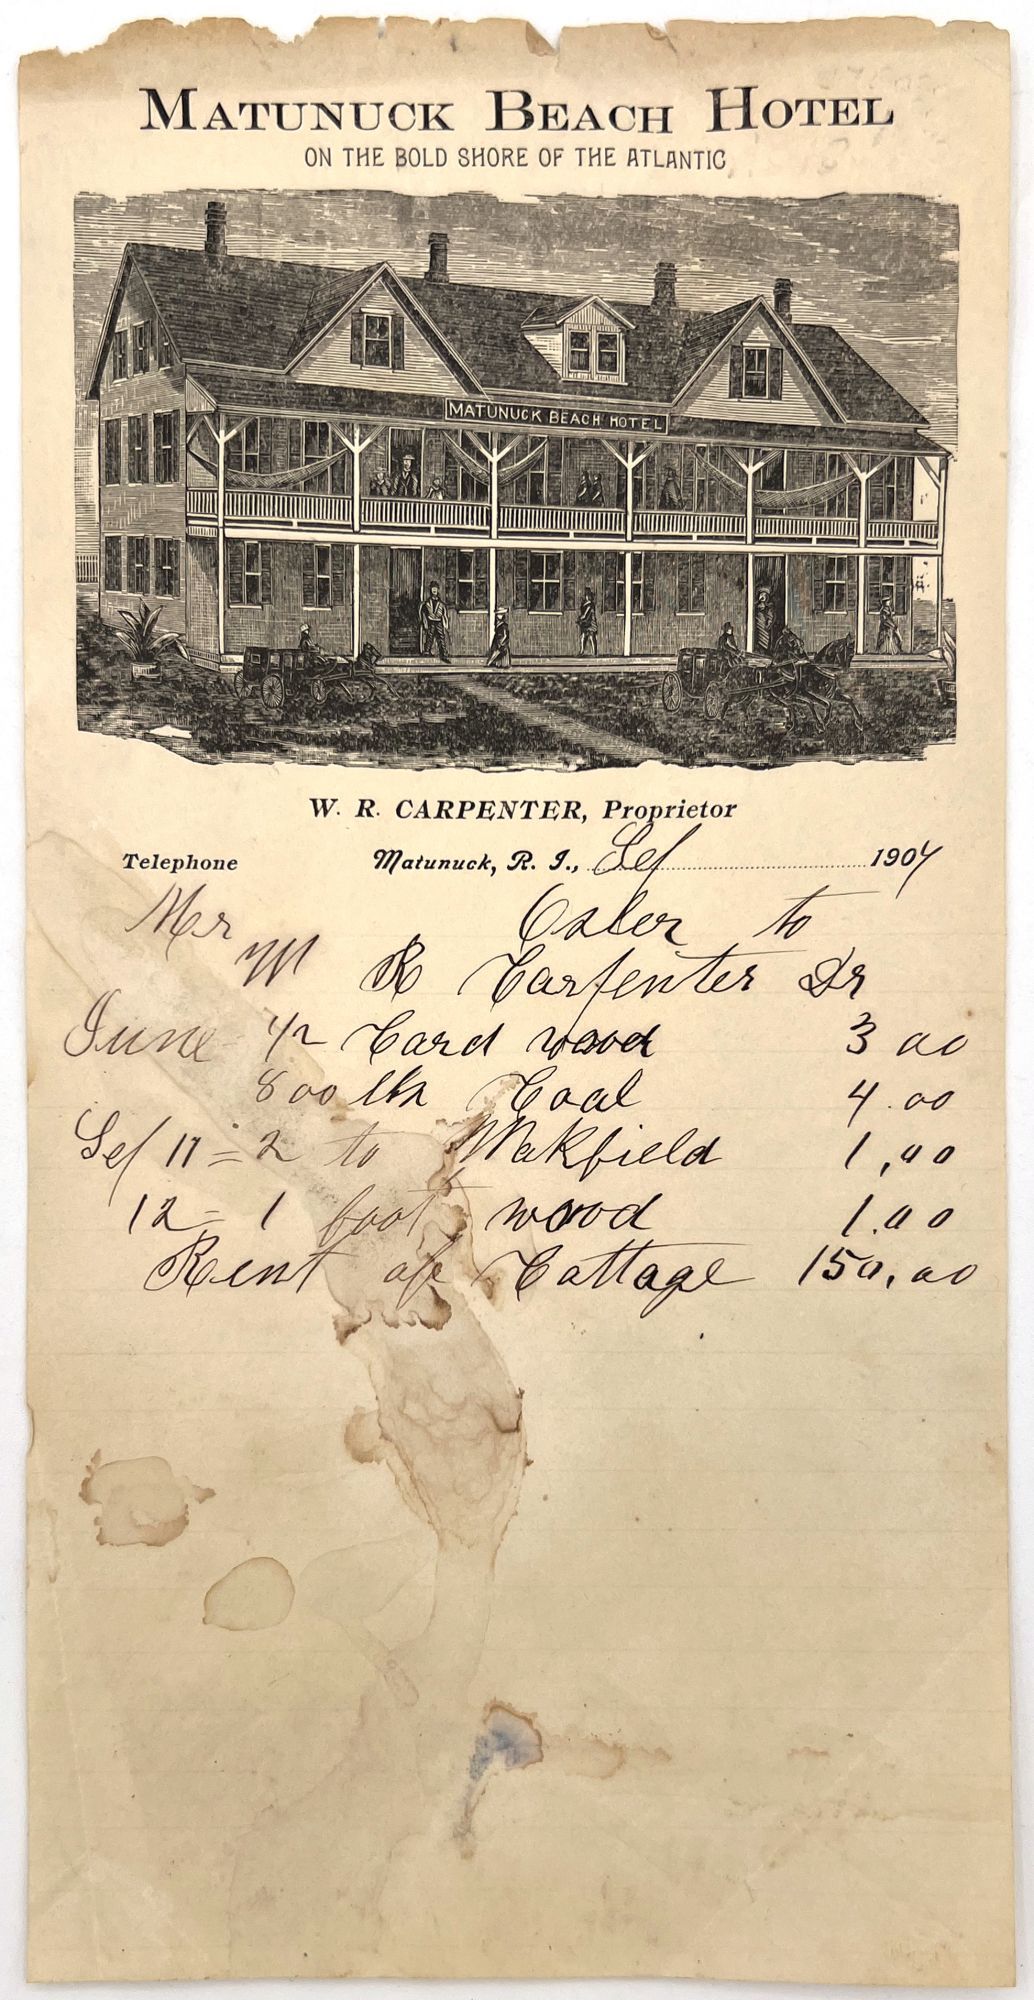 MATUNUCK BEACH HOTEL
ON THE BOLD SHORE OF THE ATLANTIC
MATUNUCK BEACH HOTEL
W. R. CARPENTER, Proprietor
Telephone Matunuck, R. I., Sep 1904
Mr Osler to
W R Carpenter Dr
June 1/2 Card wood 3 00
800 lbs Coal 4.00
Sep 11 = 2 to Wakfield 1,00
12 = 1 foot wood 1.00
Rent of Cottage 150.00